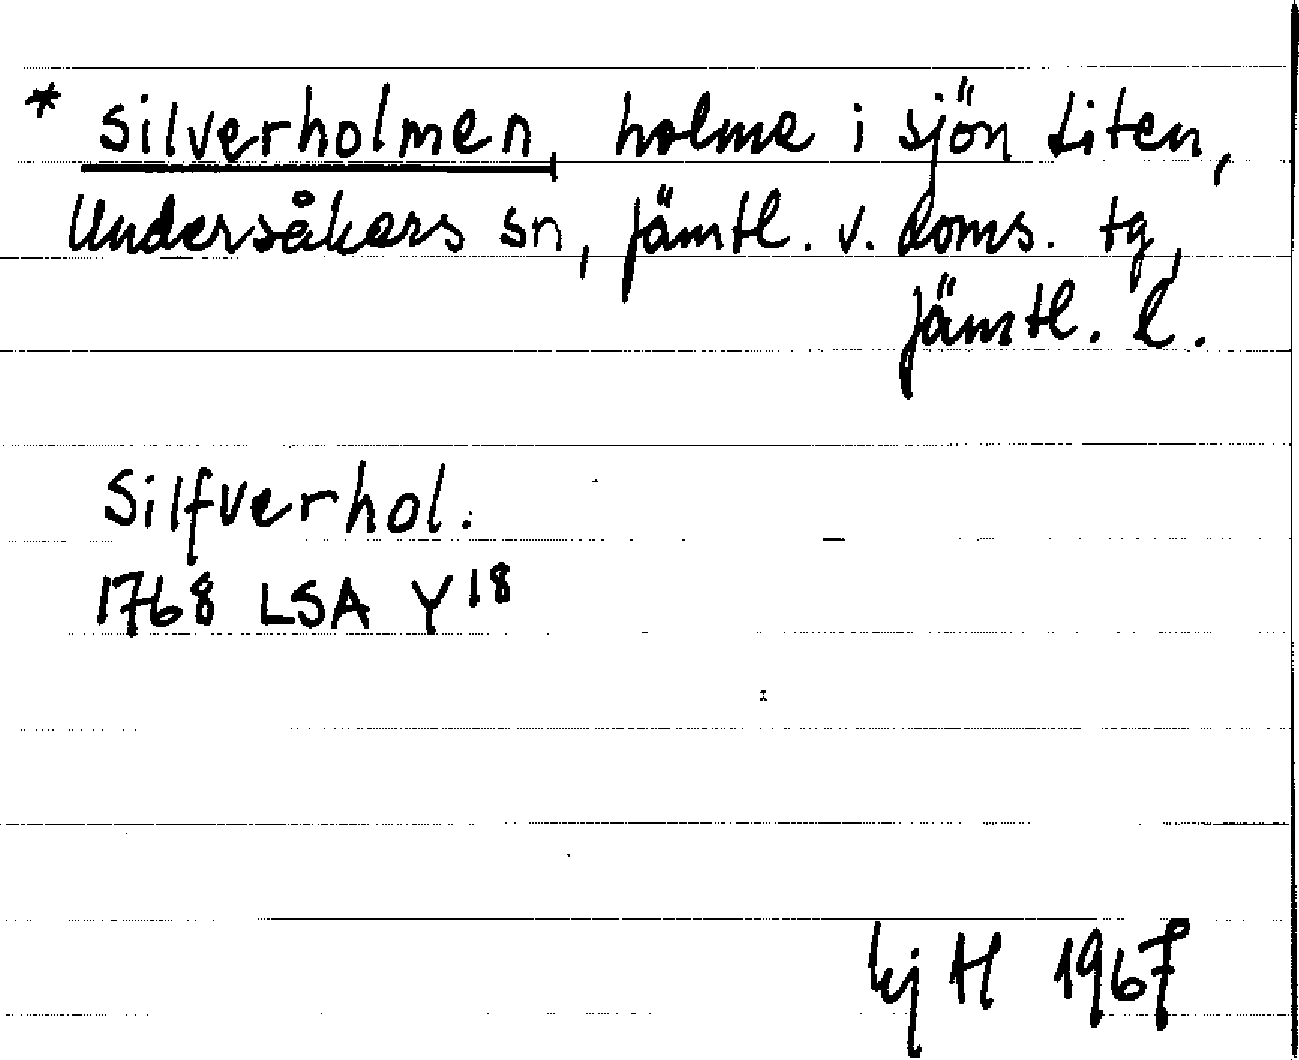 * Silverholmen, holme i sjön Liten,
Undersåkers sn, Jämtl. v. doms. tg,
Jämtl. l.
Silfverhol.
1768 LSA Y18
kj H 1967